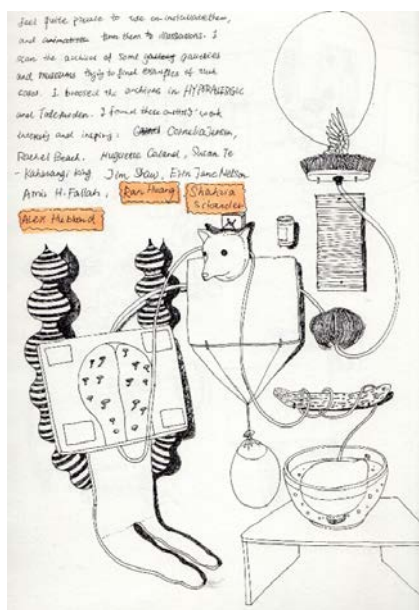 feel quite private to use on installation them,
and turn them to illustrations. I
scan the archive of some galleries
and museums trying to find examples of such
cases. I browsed the archives in HYPERALLERGIC
and Tate London. I found these artists' work
intensity and inspiring: Cornelia
Rachel Beach. Huguette Caland, Susan Te
- Kahurangi King Jim Shaw, Erin Jane Nelson
Amir H. Fallah, Ran Hwang, Shahzia
Sikander
Alex Hubbard